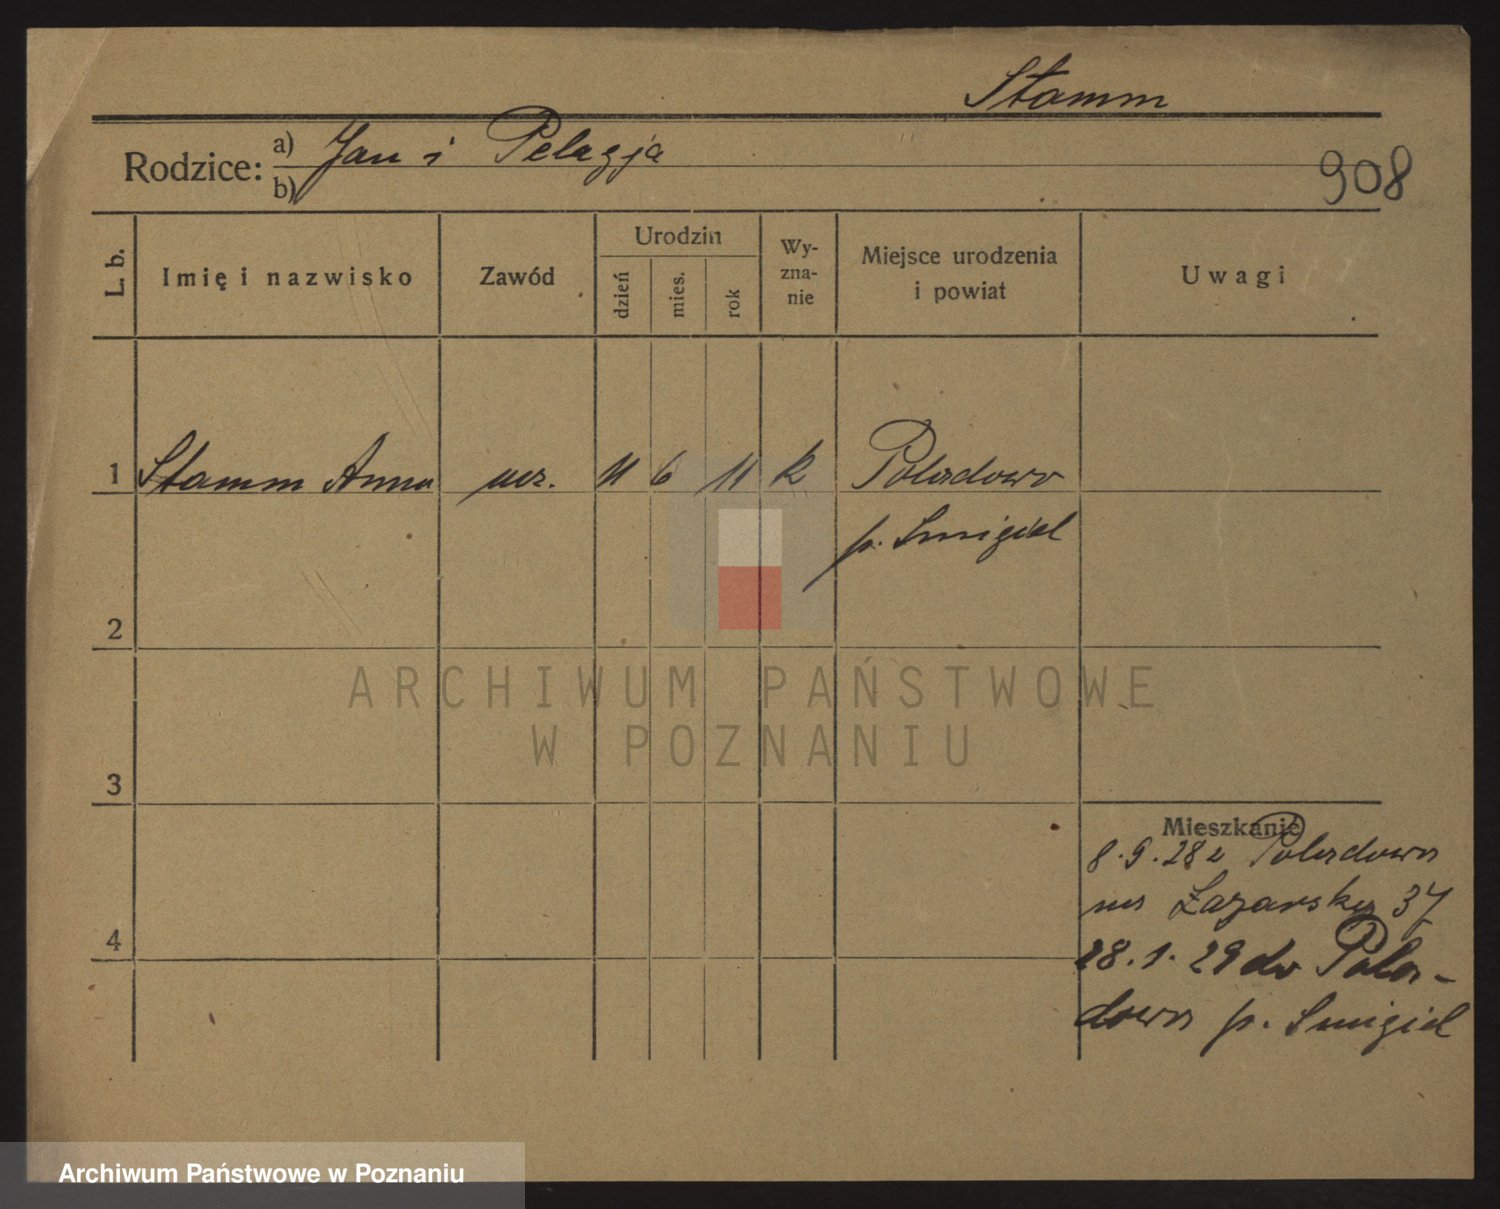 Stamm
Rodzice: a) Jan i Pelagja
b)
908
L. b.
Imię i nazwisko
Zawód
Urodzin
dzień
mies.
rok
Wy-
zna-
nie
Miejsce urodzenia
i powiat
Uwagi
1 Stamm Anna ucz. 11 6 11 k Poladowo
p. Smigiel
2
ARCHIWUM PAŃSTWOWE
W POZNANIU
3
Mieszkanie
8.9.28 z Poladowa
na Łazarska 37
28.1.29 do Pola-
dowa p. Smigiel
4
Archiwum Państwowe w Poznaniu